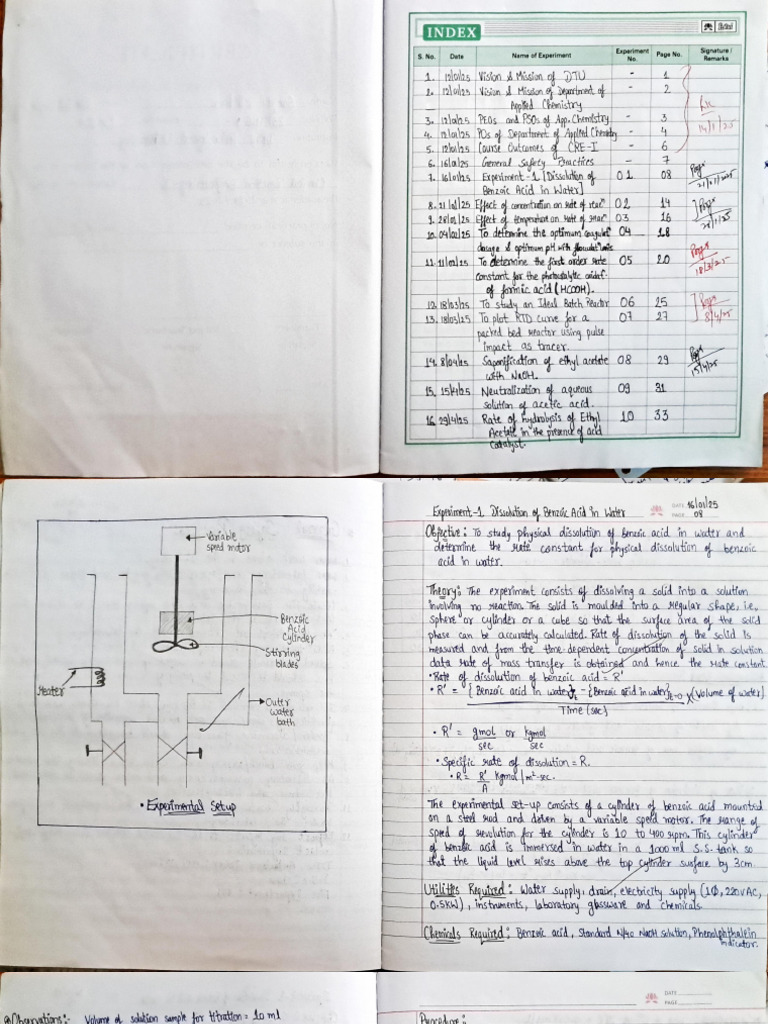 INDEX
S. No. Date Name of Experiment Experiment No. Page No. Signature / Remarks
1. 12/01/25 Vision & Mission of DTU - 1
2. 12/01/25 Vision & Mission of Department of - 2
Applied Chemistry
3. 12/01/25 PEOs and PSOs of App. Chemistry - 3
4. 12/01/25 POs of Department of Applied Chemistry - 4
5. 12/01/25 Course Outcomes of CRE-I - 6
14/1/25
6. 16/01/25 General Safety Practices - 7
7. 16/01/25 Experiment-1 [Dissolution of 01 08
Benzoic Acid in Water]
21/01/2025
8. 21/01/25 Effect of concentration on rate of reac 02 14
9. 28/01/25 Effect of temperature on rate of reac 03 16
10. 04/02/25 To determine the optimum coagulat 04 18
dosage & optimum pH with
11. 11/02/25 To determine the first order rate 05 20
constant for the photocatalytic
of formic acid (HCOOH).
12. 18/03/25 To study an Ideal Batch Reactor 06 25
13. 18/03/25 To plot RTD curve for a 07 27
packed bed reactor using pulse
impact as tracer.
8/4/25
14. 8/04/25 Saponification of ethyl acetate 08 29
with NaOH.
15/4/25
15. 15/4/25 Neutralization of aqueous 09 31
solution of acetic acid.
16. 29/4/25 Rate of hydrolysis of Ethyl 10 33
Acetate in the presence of acid
catalyst.
Variable
speed motor
Benzoic
Acid
Cylinder
Stirring
blades
Heater
Outer
water
bath
• Experimental Setup
Experiment-1 Dissolution of Benzoic Acid in Water
DATE 16/01/25
PAGE 08
Objective: To study physical dissolution of benzoic acid in water and
determine the rate constant for physical dissolution of benzoic
acid in water.
Theory: The experiment consists of dissolving a solid into a solution
involving no reaction. The solid is moulded into a regular shape, i.e.,
sphere or cylinder or a cube so that the surface area of the solid
phase can be accurately calculated. Rate of dissolution of the solid is
measured and from the time dependent concentration of solid in solution
data rate of mass transfer is obtained and hence the rate constant.
• Rate of dissolution of benzoic acid = R'
• R' = {Benzoic acid in water}t - {Benzoic acid in water}t=0 x (Volume of water)
Time (sec)
• R' = gmol or kgmol
sec sec
• Specific rate of dissolution = R.
• R = R' kgmol/m²-sec.
A
The experimental set-up consists of a cylinder of benzoic acid mounted
on a steel rod and driven by a variable speed motor. The range of
speed of revolution for the cylinder is 10 to 400 rpm. This cylinder
of benzoic acid is immersed in water in a 1000 ml S.S. tank so
that the liquid level rises above the top cylinder surface by 3cm.
Utilities Required: Water supply, drain, electricity supply (1Φ, 220V AC,
0.5KW), instruments, laboratory glassware and chemicals.
Chemicals Required: Benzoic acid, Standard N/40 NaOH solution, Phenolphthalein
indicator.
Observations:- Volume of solution sample for titration = 10 ml
DATE
PAGE
Procedure: